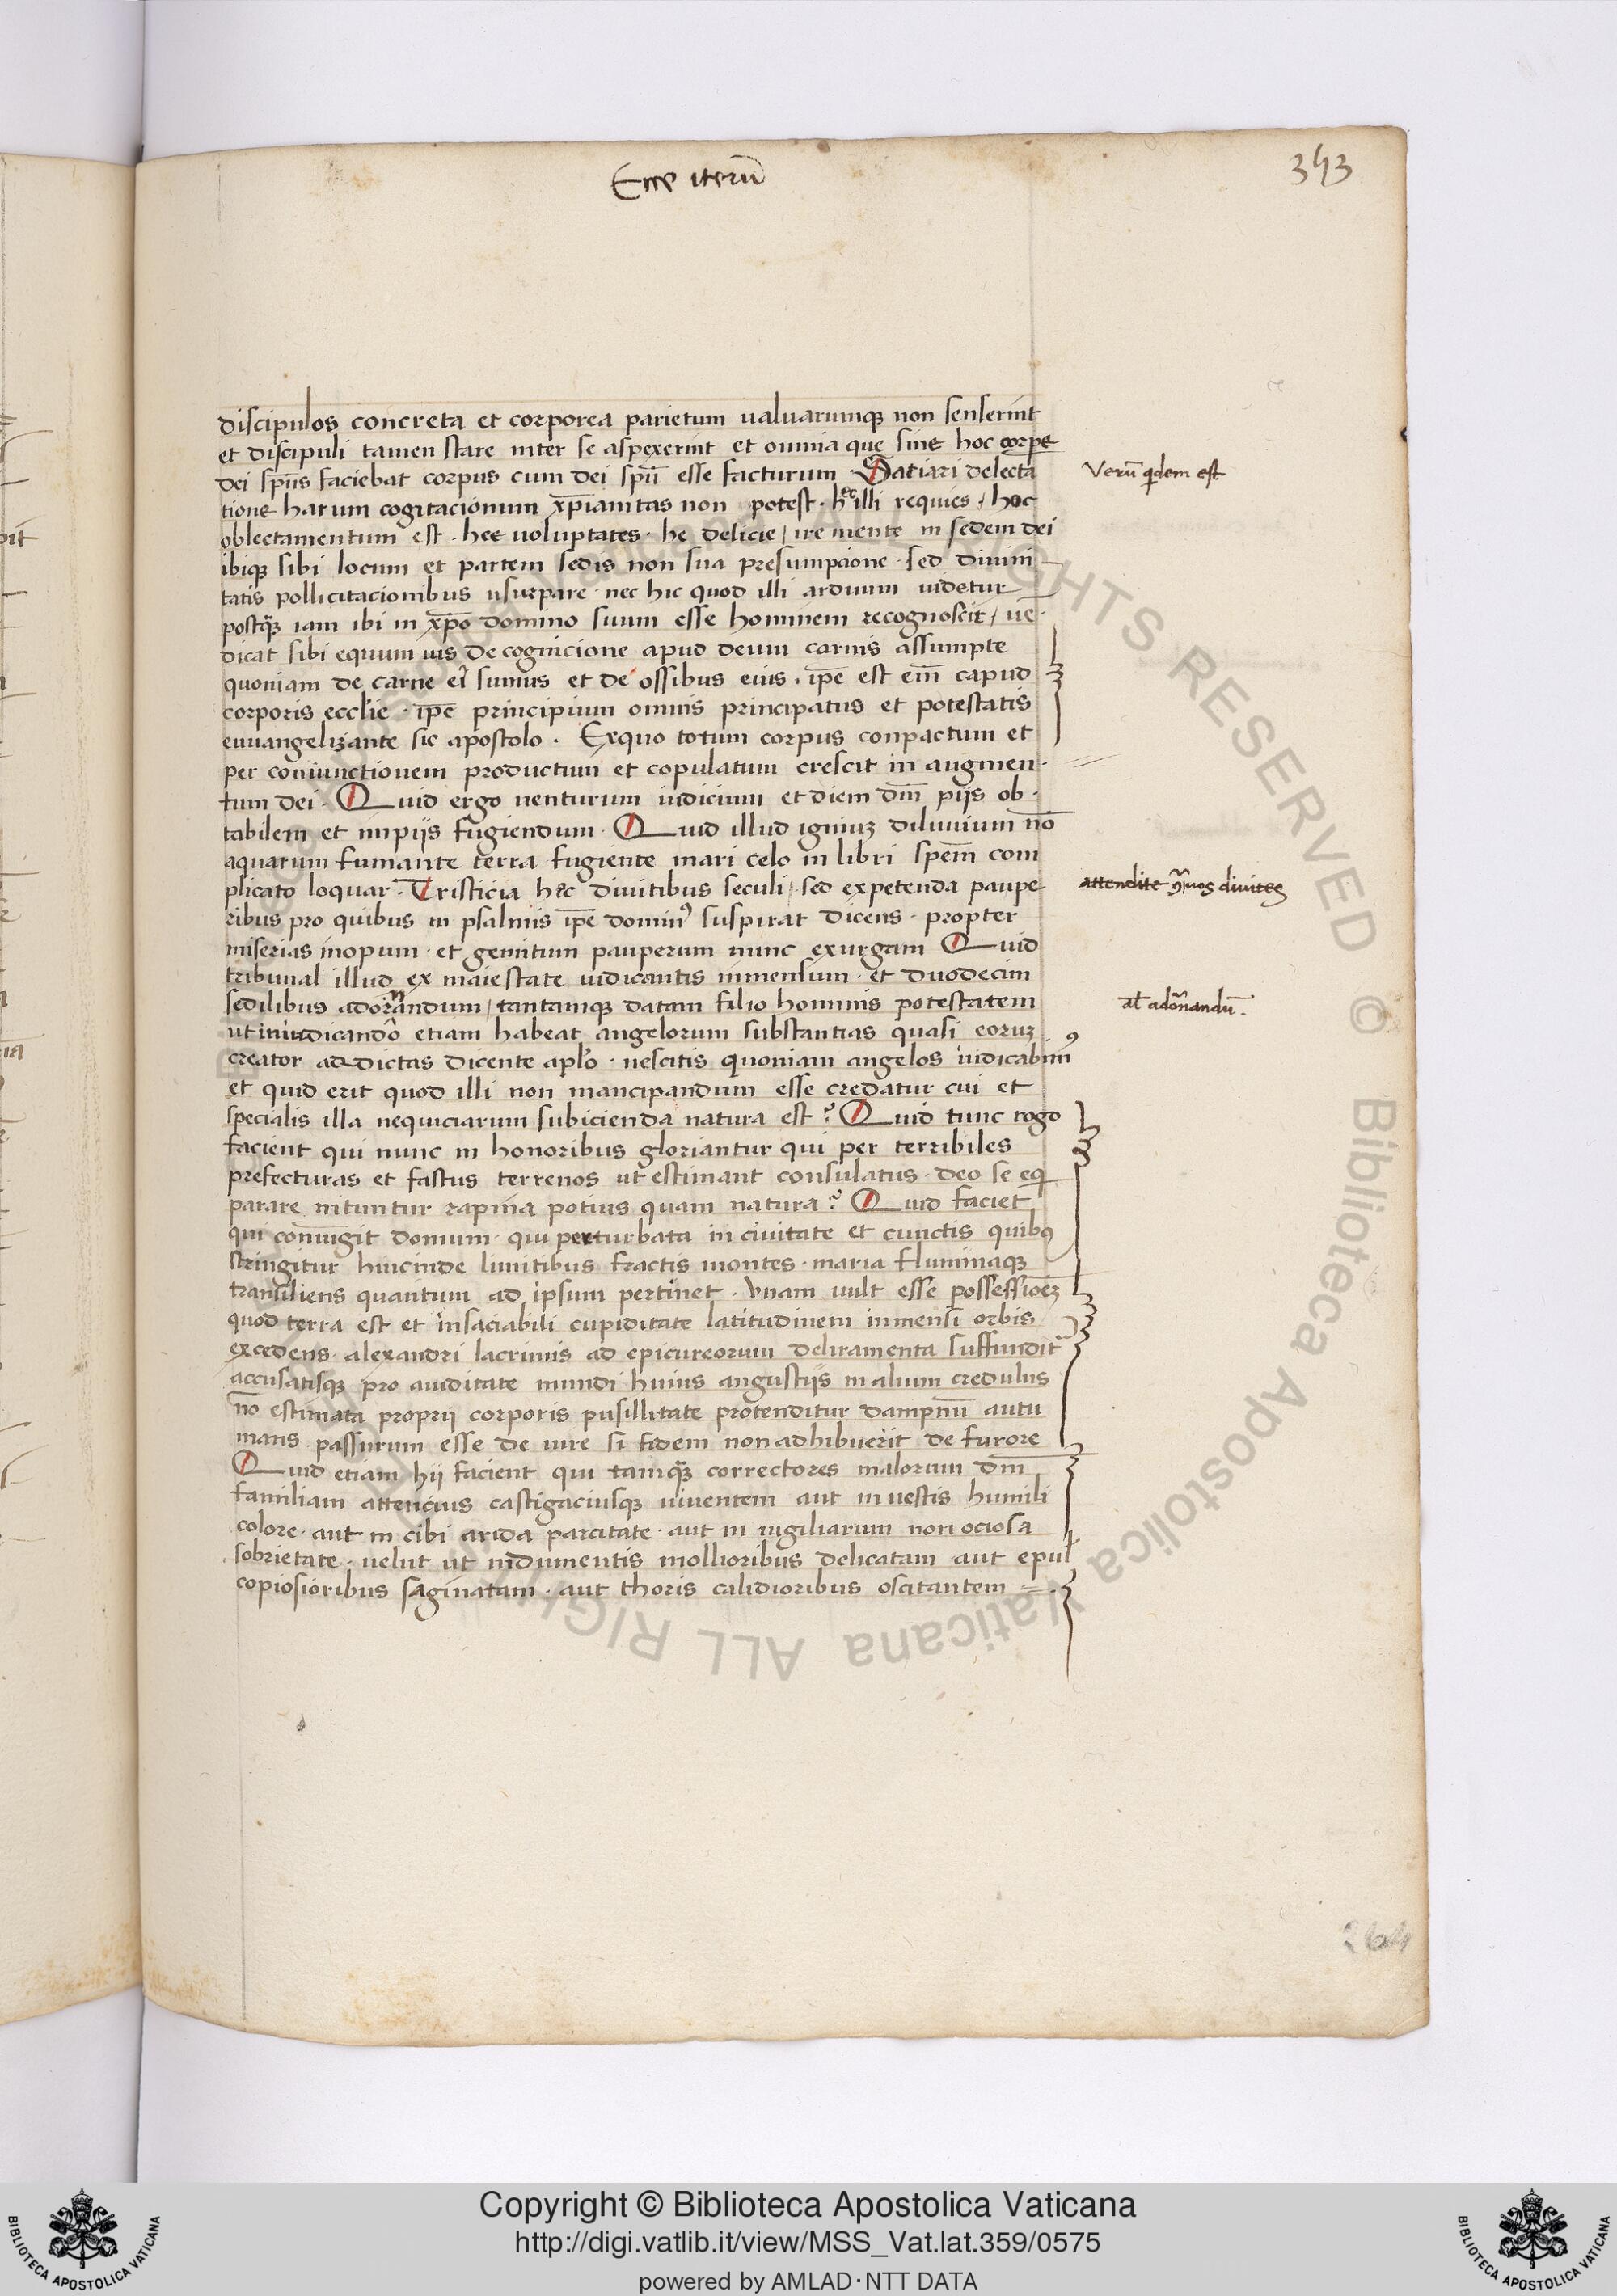 Ecce iterū
343
discipulos concreta et corporea parietum ualuarumqꝫ non senserint
et discipuli tamen stare inter se aspexerint et omnia que sine hoc corpe
dei spūs faciebat corpus cum dei spū esse facturum Satiari delecta
tione harum cogitacionum xp̄ianitas non potest · hec illi requies / hoc
oblectamentum est · hee uoluptates · he delicie / ire mente in sedem dei
ibiqꝫ sibi locum et partem sedis non sua presumpcione · sed diuini
tatis pollicitacionibus usurpare · nec hic quod illi arduum uidetur
postqꝫ iam ibi in xp̄o domino suum esse hominem recognoscit / ue
dicat sibi equum ius de cognicione apud deum carnis assumpte
quoniam de carne ei sumus et de ossibus eius · ip̄e est em̄ capud
corporis ecclie · ip̄e principium omnis principatus et potestatis
euuangelizante sic apostolo · Exquo totum corpus conpactum et
per coniunctionem productum et copulatum crescit in augmen
tum dei · Quid ergo uenturum iudicium et diem dm̄ piis ob
tabilem et impiis fugiendum · Quid illud igniuꝫ diluuium nō
aquarum fumante terra fugiente mari celo in libri spem̄ com
plicato loquar · Tristicia hec diuitibus seculi / sed expetenda paupe
ribus pro quibus in psalmis ip̄e dominꝰ suspirat dicens · propter
miserias inopum · et gemitum pauperum nunc exurgam Quid
tribunal illud ex maiestate iudicantis inmensum · et duodecim
sedilibus adornandum / tantamqꝫ datam filio hominis potestatem
ut iniudicando etiam habeat angelorum substantias quasi eoruꝫ
creator addictas dicente aplo · nescitis quoniam angelos iudicabimꝰ
et quid erit quod illi non mancipandum esse credatur cui et
specialis illa nequiciarum subicienda natura est? Quid tunc rogo
facient qui nunc in honoribus gloriantur qui per terribiles
prefecturas et fastus terrenos ut estimant consulatus · deo se eq
parare nituntur rapina potius quam natura? Quid faciet
qui coniungit domum · qui perturbata in ciuitate et cunctis quibꝰ
stringitur hincinde limitibus fractis montes · maria fluminaqꝫ
transiliens quantum ad ipsum pertinet · Vnam uult esse possessioēꝫ
quod terra est et insaciabili cupiditate latitudinem inmensi orbis
excedens · alexandri lacrimis ad epicureorum deliramenta suffundit
accusatisqꝫ pro auiditate mundi huius angustiis in alium credulus
nō estimata proprii corporis pusillitate protenditur dampnū autu
mans passurum esse de iure si fidem non adhibuerit de furore
Quid etiam hii facient qui tamqꝫ correctores malorum dm̄
familiam attencius castigaciusqꝫ uiuentem aut in uestis humili
colore · aut in cibi arida parcitate · aut in uigiliarum non ociosa
sobrietate · uelut ut indumentis mollioribus delicatam aut epul
copiosioribus saginatam · aut thoris calidioribus oscitantem
Verū qdem est
attendite quos diuites
al adornandū.
BIBLIOTECA APOSTOLICA VATICANA
Copyright © Biblioteca Apostolica Vaticana
http://digi.vatlib.it/view/MSS_Vat.lat.359/0575
powered by AMLAD·NTT DATA
BIBLIOTECA APOSTOLICA VATICANA
© Biblioteca Apostolica Vaticana ALL RIGHTS RESERVED